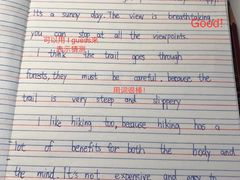 It's a sunny day. The view is breathtaking
Good!
you can stop at all the viewpoints.
可以用 I guess来
表示猜测
I think the trail goes through
forests, they must be careful, because the
trail is very steep and slippery
用词很棒!
I like hiking too, because hiking has a
lot of benefits for both the body and
the mind. It's not expensive and easy to